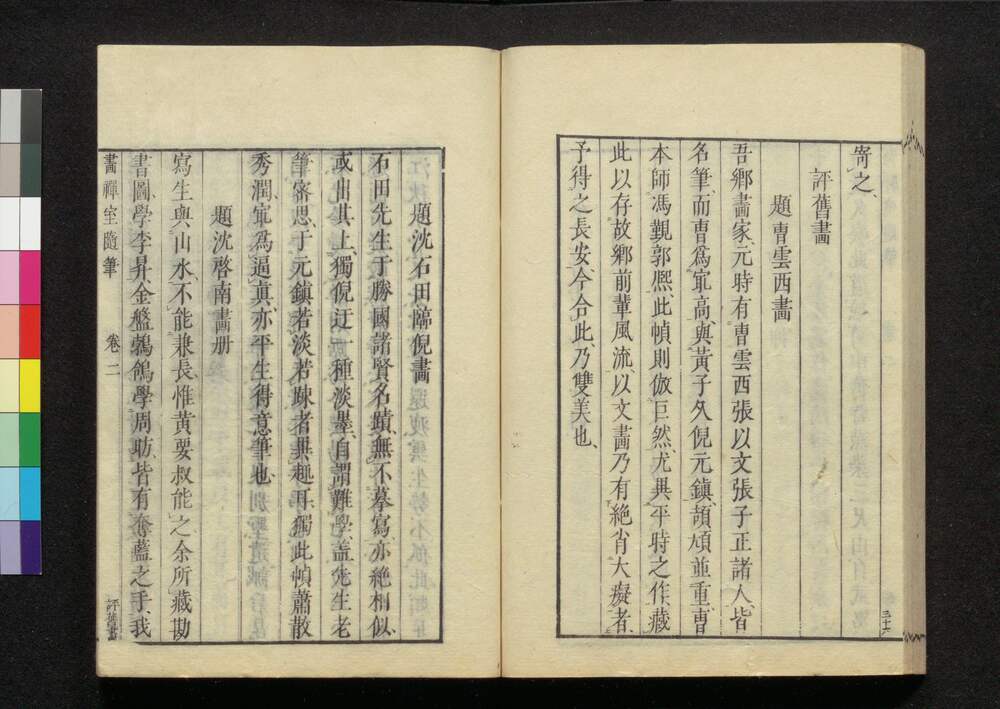 寄之
評舊畫
題曹雲西畫
吾鄉畫家元時有曹雲西張以文張子正諸人皆
名筆而曹爲㝡高與黃子久倪元鎮頡頏並重曹
本師馮覲郭熈此幀則倣巨然尤異平時之作藏
此以存故鄉前輩風流以文畫乃有絕肖大癡者
予得之長安今合此乃雙美也
題沈石田臨倪畫
石田先生于勝國諸賢名蹟無不摹寫亦絕相似
或出其上獨倪迂一種淡墨自謂難學蓋先生老
筆密思于元鎮若淡若踈者異趣耳獨此幀蕭散
秀潤㝡爲逼眞亦平生得意筆也
題沈啓南畫册
寫生與山水不能兼長惟黃要叔能之余所藏勘
書圖學李昇金盤鵓鴿學周昉皆有奪藍之手我
畫禪室隨筆
卷二
評舊畫